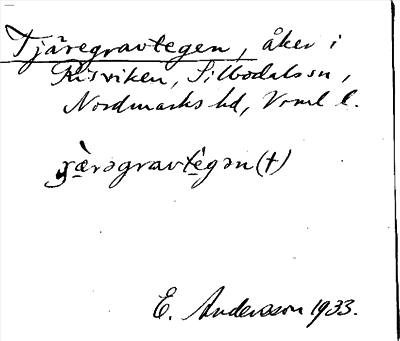 Tjäregravtegen, åker i
Risviken, Silbodalssn,
Nordmarks hd, Vrml l.
E. Andersson 1933.